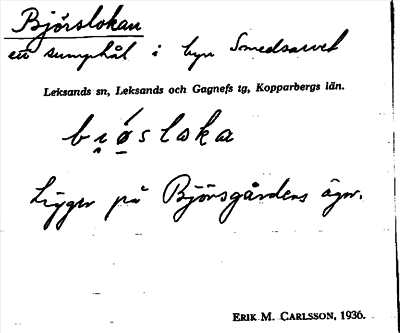 Björslokan
ett sumphål i byn Smedsarvet
Leksands sn, Leksands och Gagnefs tg, Kopparbergs län.
bi̯ǿ̱sloka
Ligger på Björsgårdens ägor.
ERIK M. CARLSSON, 1936.